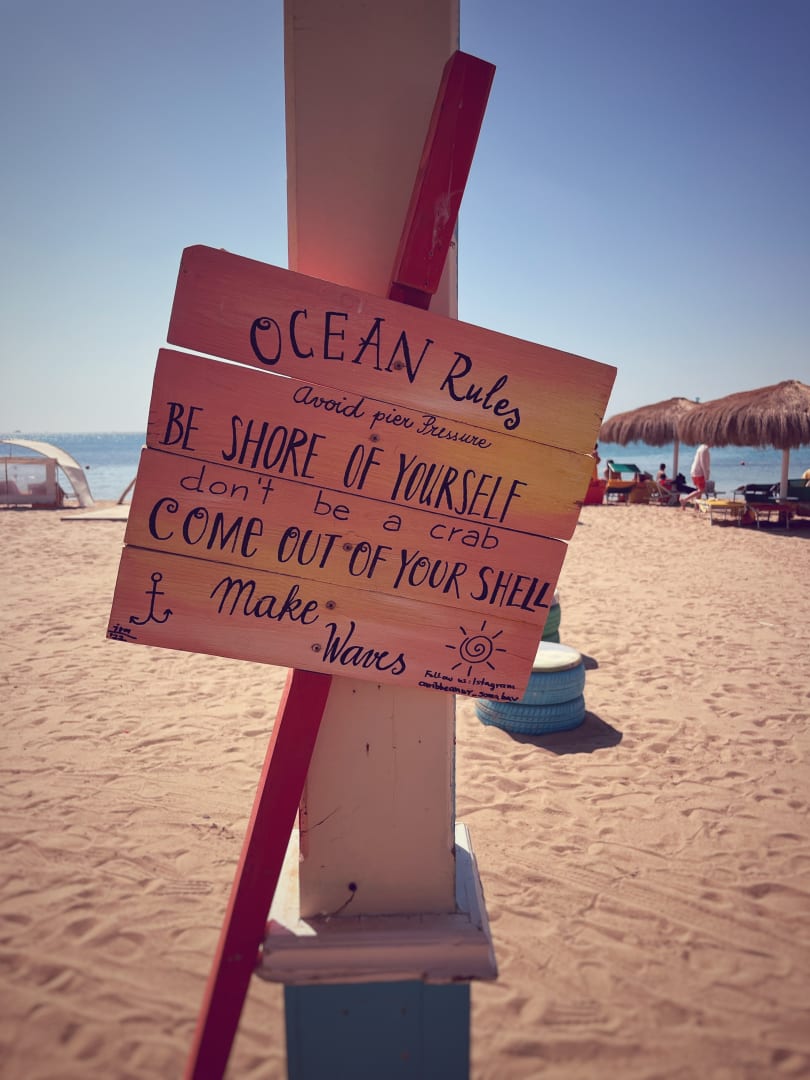 OCEAN Rules
Avoid pier Pressure
BE SHORE OF YOURSELF
don't be a crab
COME OUT OF YOUR SHELL
Make
Waves
Follow us: Istagram